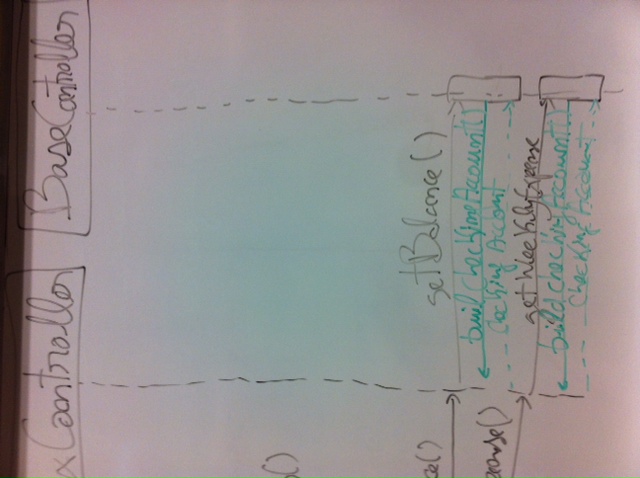 xController
BaseController
()
ce()
setBalance()
build checkingAccount()
Checking Account
pense()
getWeeklyExpense
build checkingAccount()
Checking Account